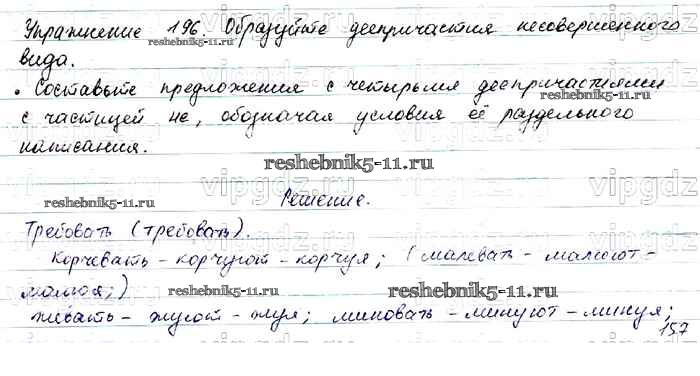 Упражнение 196. Образуйте деепричастия несовершенного
reshebnik5-11.ru
вида.
• Составьте предложения с четырьмя деепричастиями
reshebnik5-11.ru
с частицей не, обозначая условия её раздельного
написания.
reshebnik5-11.ru
vipgdz
reshebnik5-11.ru
Решение.
Требовать (требовать).
Корчевать - корчуют - корчуя; (малевать - малюют -
малюя;)
reshebnik5-11.ru
reshebnik5-11.ru
жевать - жуют - жуя; миновать - минуют - минуя;
157